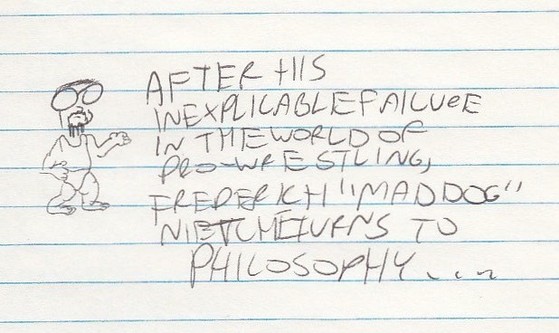 AFTER HIS
INEXPLICABLE FAILURE
IN THE WORLD OF
PRO-WRESTLING,
FREDERICH "MAD DOG"
NIETCHE TURNS TO
PHILOSOPHY...